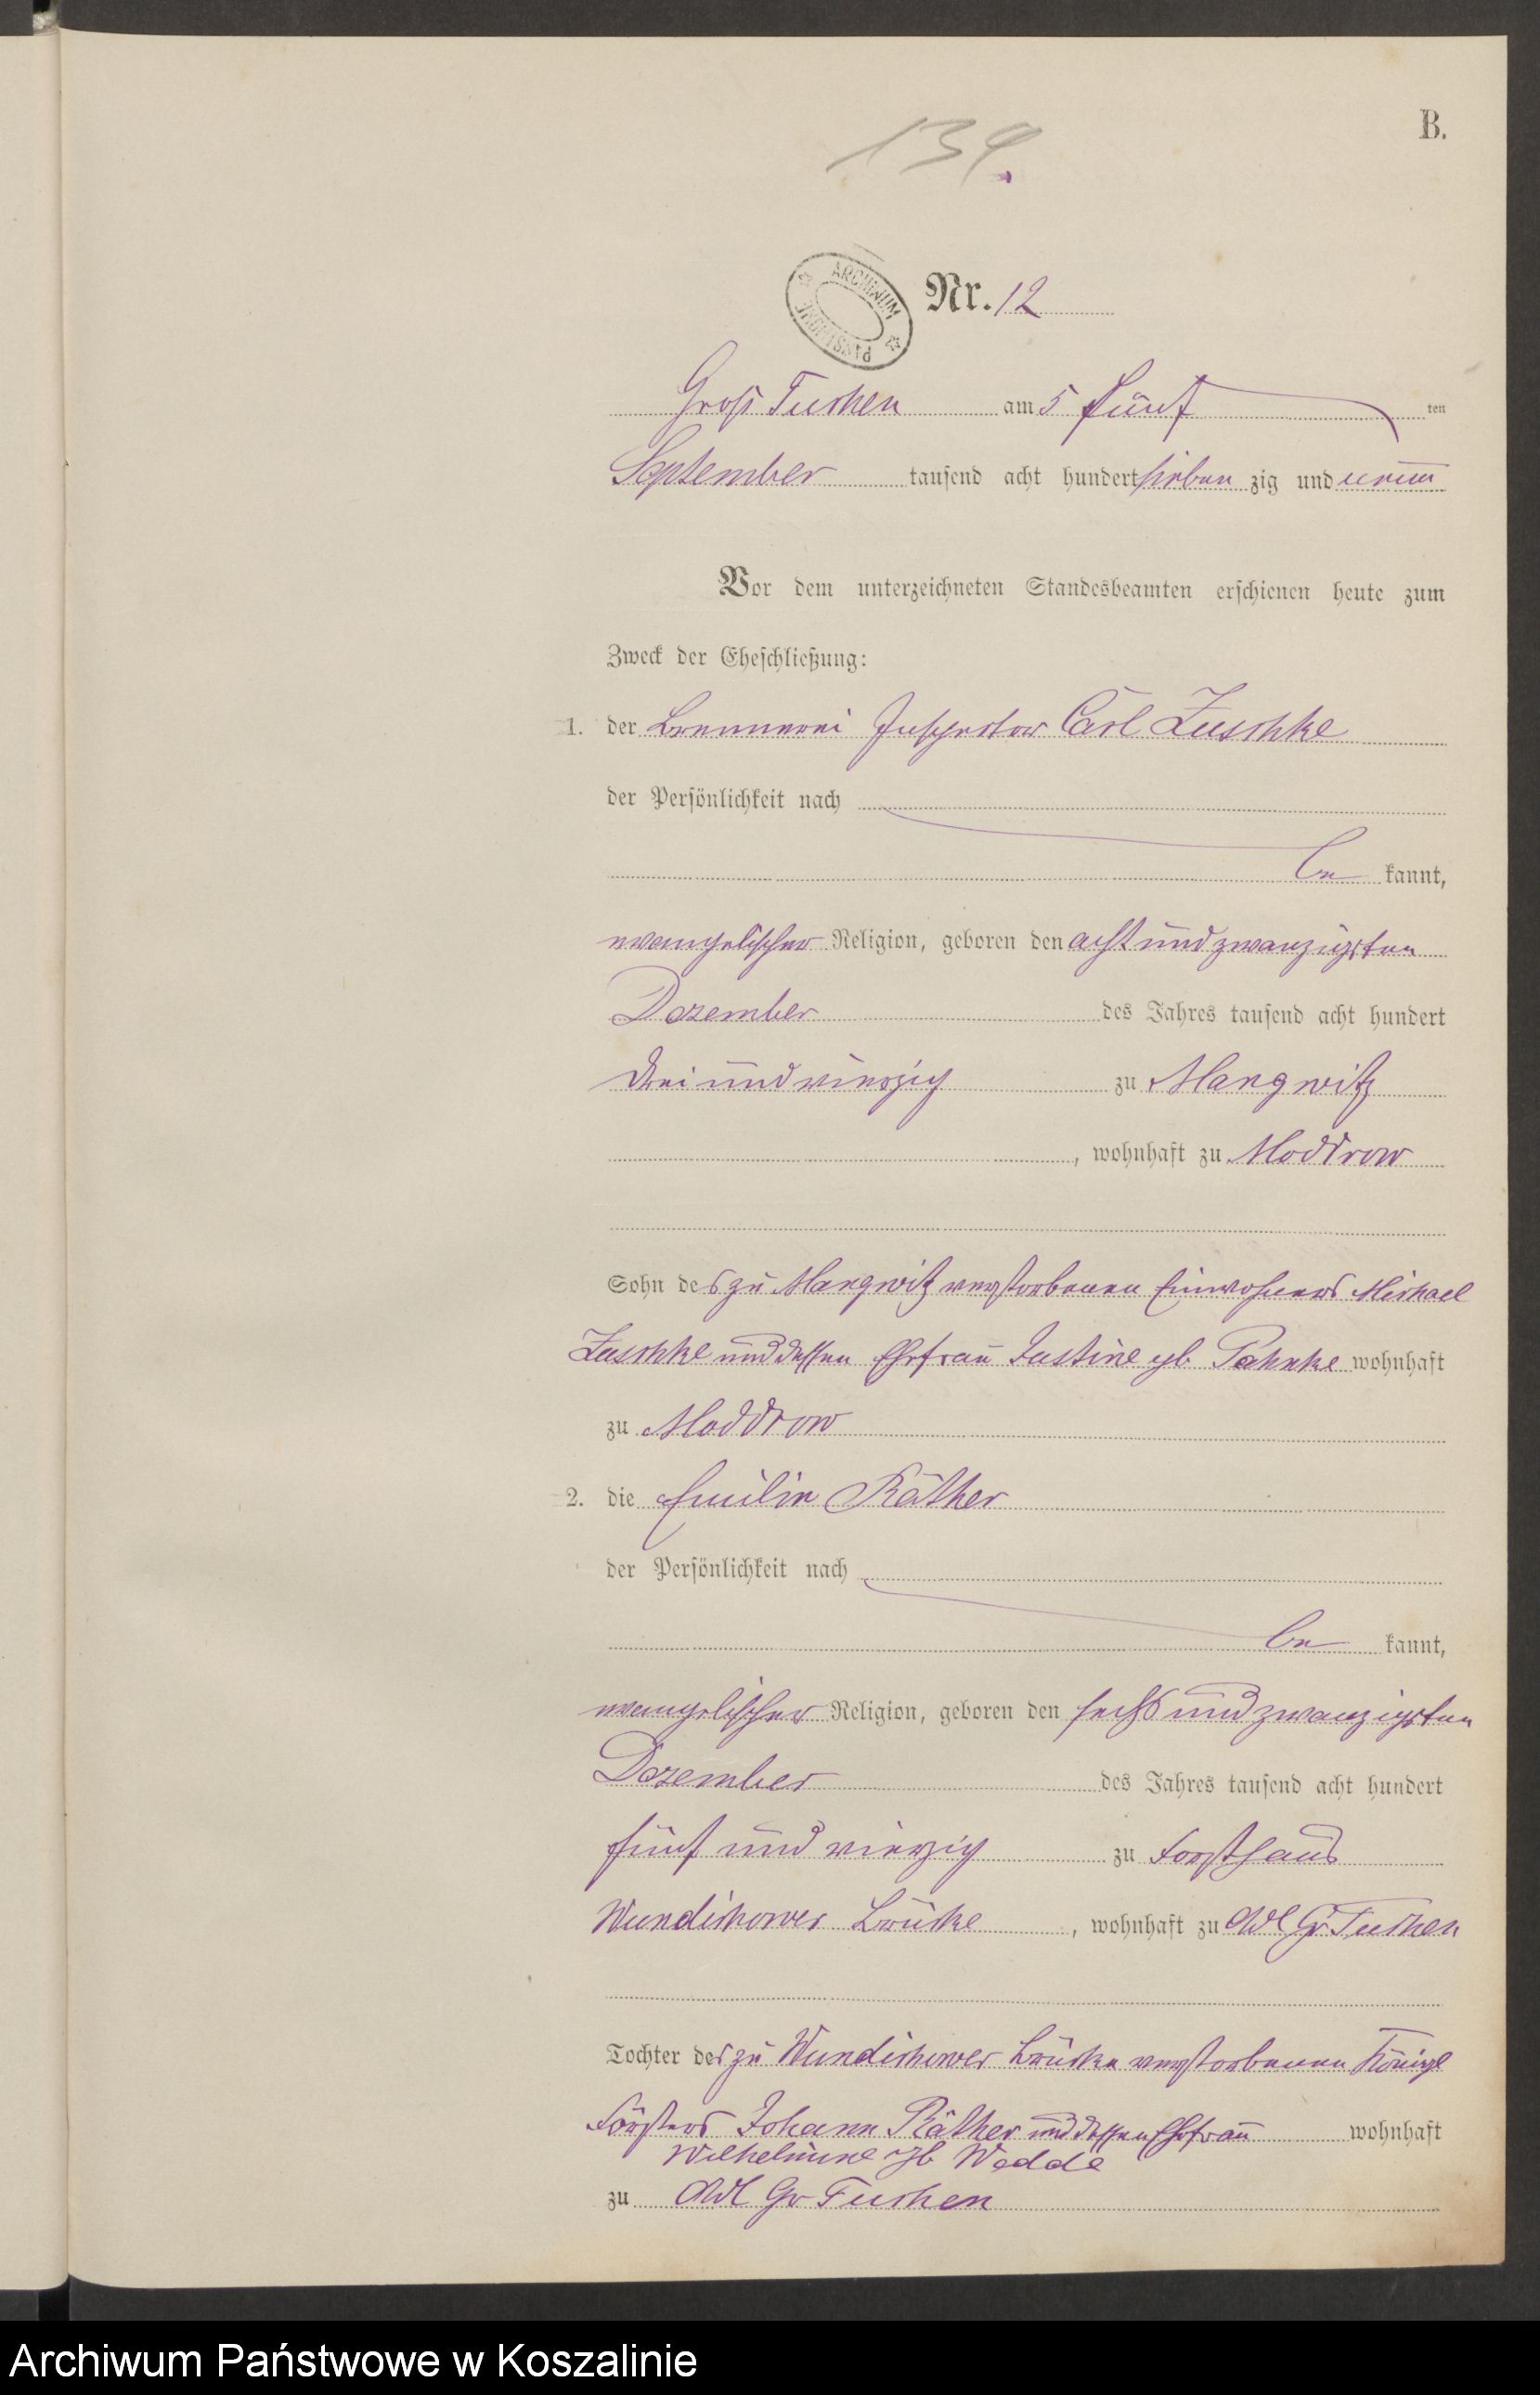 B.
139.
ARCHIWUM PAŃSTWOWE
Nr. 12
Groß Tuchen am 5 fünf ten
September tausend acht hundert sieben zig und neun
Vor dem unterzeichneten Standesbeamten erschienen heute zum
Zweck der Eheschließung:
1. der Brennerei Inspector Carl Zuschke
der Persönlichkeit nach
be kannt,
evangelischer Religion, geboren den acht und zwanzigsten
Dezember des Jahres tausend acht hundert
drei und vierzig zu Mangwitz
, wohnhaft zu Moddrow
Sohn des zu Mangwitz verstorbenen Einwohners Michael
Zuschke und dessen Ehefrau Justine gb Pahnke wohnhaft
zu Moddrow
2. die Emilie Räther
der Persönlichkeit nach
be kannt,
evangelischer Religion, geboren den sechs und zwanzigsten
Dezember des Jahres tausend acht hundert
fünf und vierzig zu Forsthaus
Wundichower Brücke , wohnhaft zu Adl Gr Tuchen
Tochter des zu Wundichower Brücke verstorbenen Königl
Försters Johann Räther und dessen Ehefrau wohnhaft
Wilhelmine gb Wedde
zu Adl Gr Tuchen
Archiwum Państwowe w Koszalinie